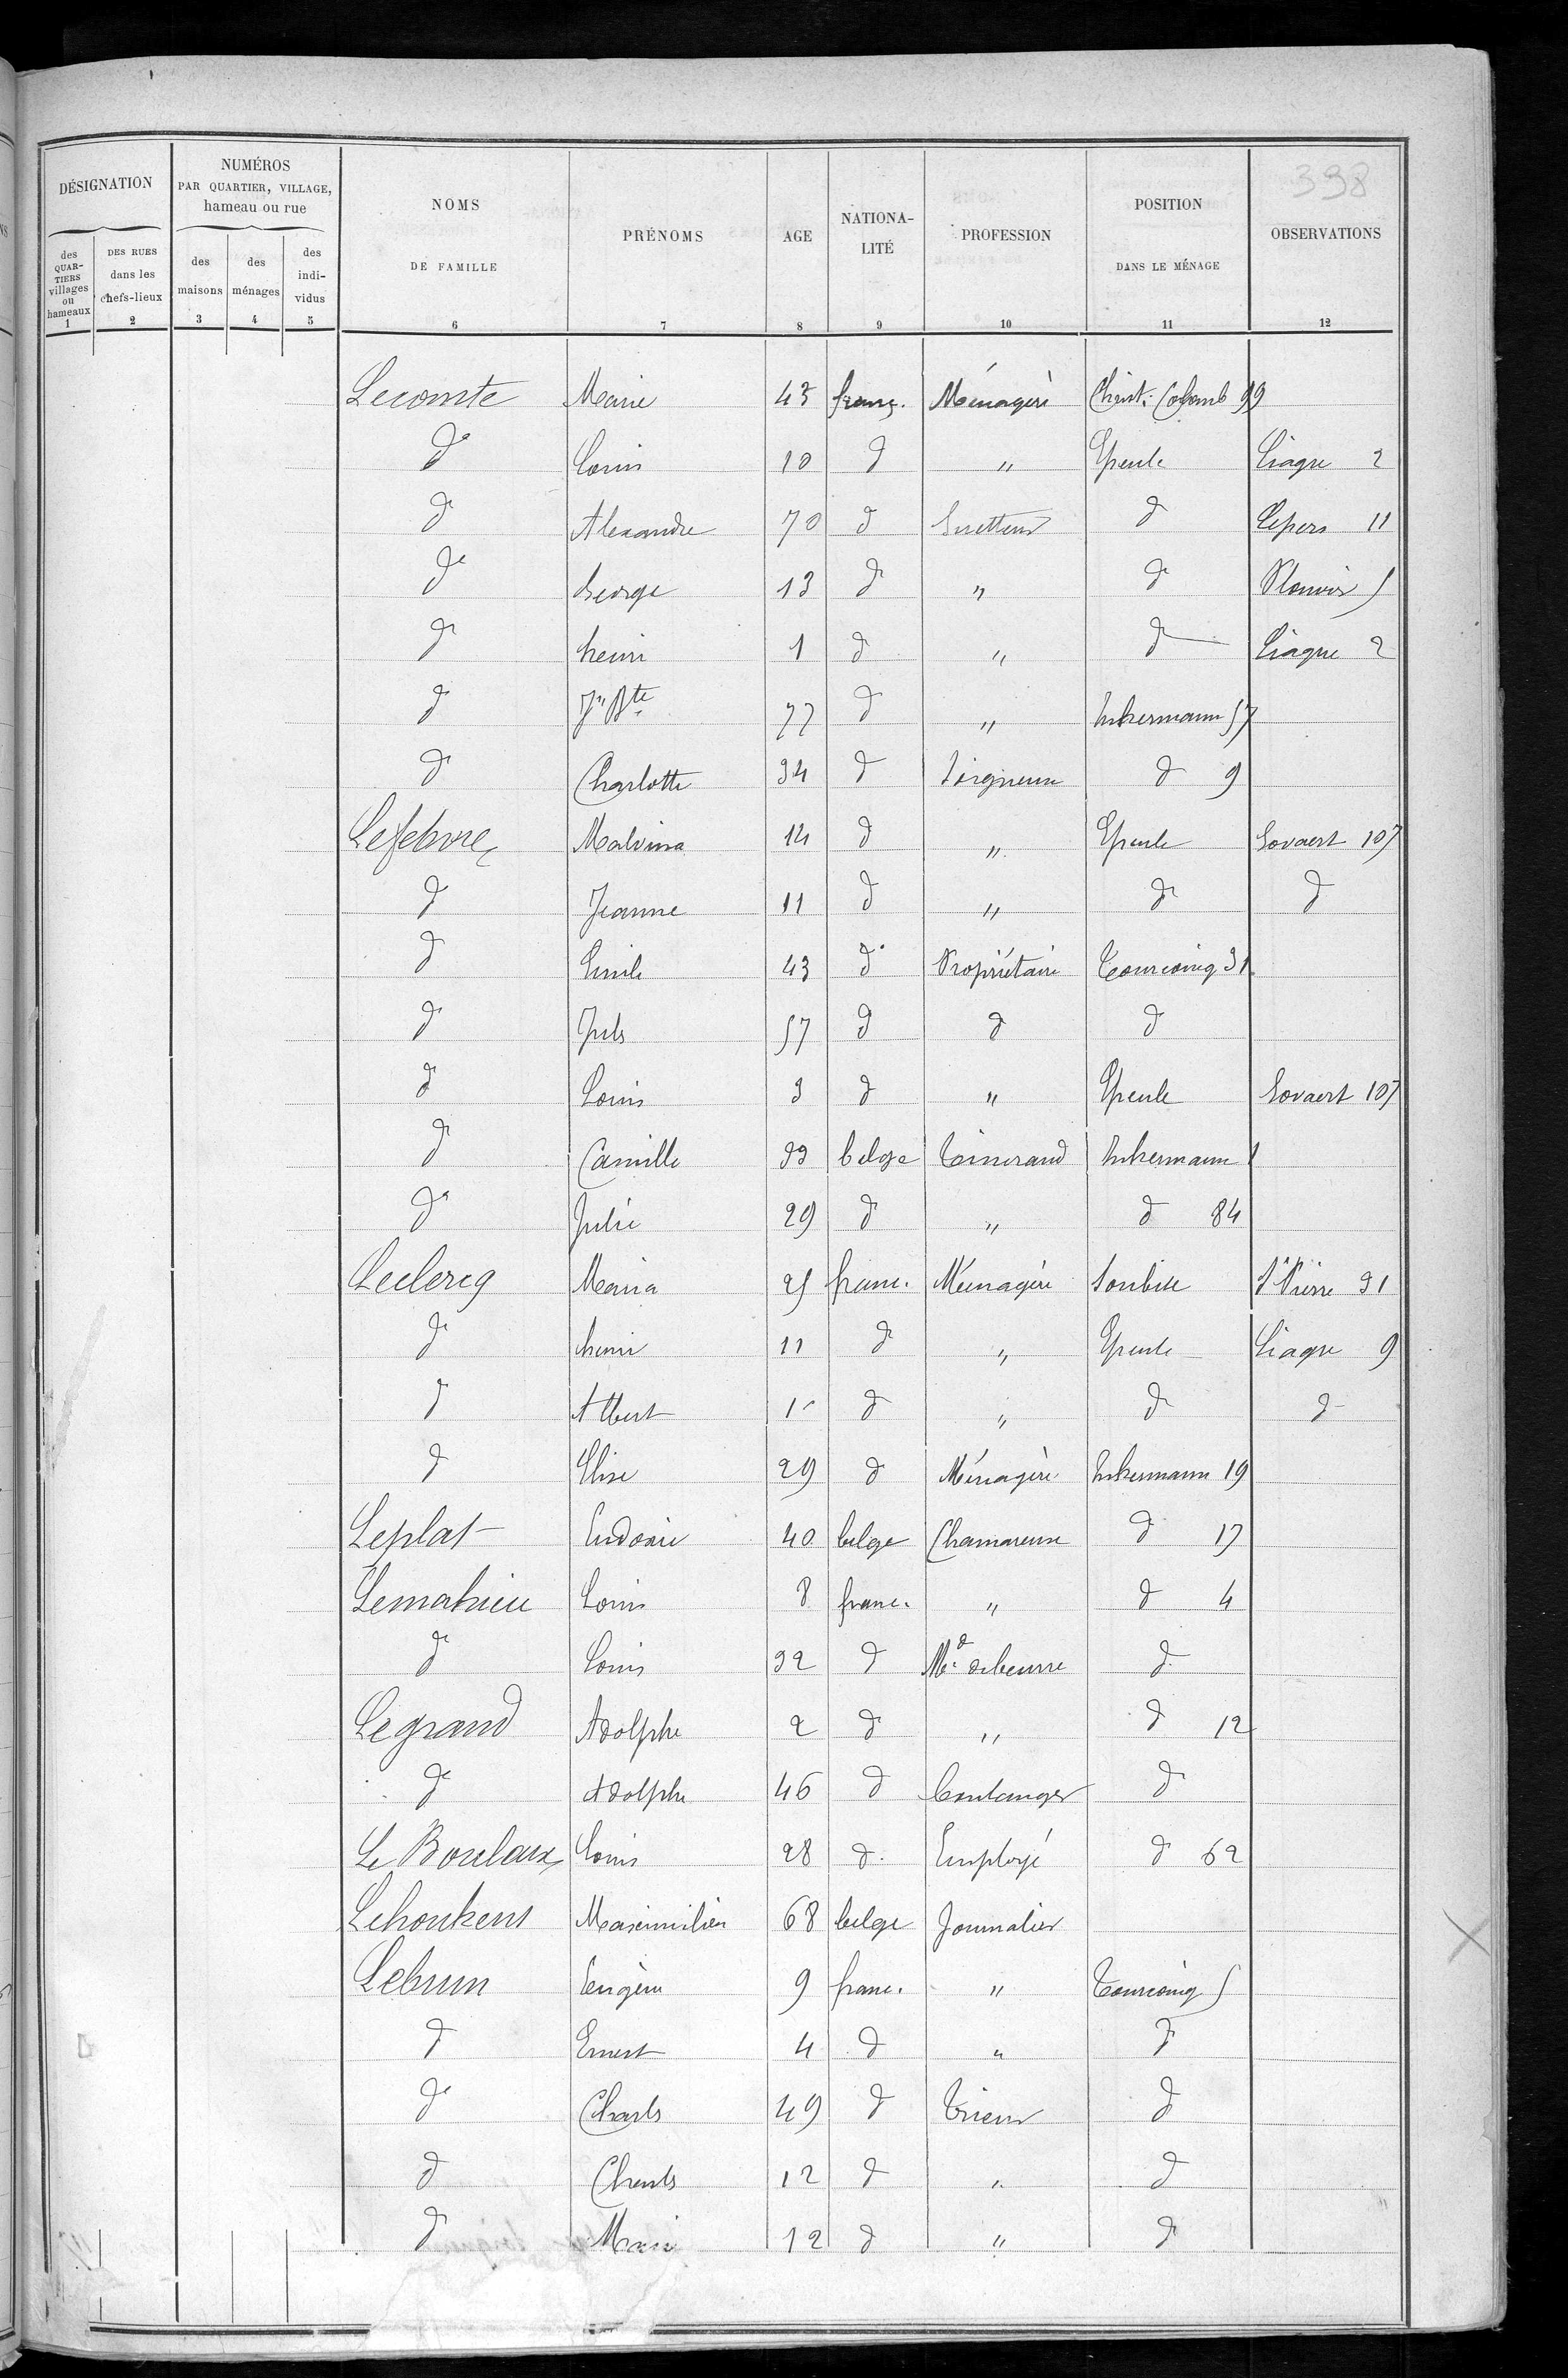 398
DÉSIGNATION
NUMÉROS PAR QUARTIER, VILLAGE, hameau ou rue
NOMS DE FAMILLE
PRÉNOMS
AGE
NATIONA-LITÉ
PROFESSION
POSITION DANS LE MÉNAGE
OBSERVATIONS
des QUAR-TIERS villages ou hameaux
DES RUES dans les chefs-lieux
des maisons
des ménages
des indi-vidus
1 2 3 4 5 6 7 8 9 10 11 12
Lecomte Marie 43 franç. Ménagère Christ. Colomb 99
d° Louis 10 d " Epeule Liagre 2
d° Alexandre 70 d d Lepers 11
d° George 13 d " d Plouvier 5
d° henri 1 d " d Liagre 2
d° Jn Bte 77 d " Inkermann 57
d° Charlotte 34 d Soigneuse d 9
Lefebvre Malvina 14 d " Epeule Lovaert 107
d Jeanne 11 d " d d
d Emile 43 d° Propriétaire Tourcoing 31
d Jules 57 d d d
d Louis 3 d " Epeule Lovaert 107
d Camille 33 belge Tisserand Inkermann
d° Julie 29 d " d 84
Leclercq Maria 25 franc. Ménagère Soubise St Pierre 31
d° henri 11 d " Epeule Liagre 9
d Albert 1 d " d d
d Elise 29 d Ménagère Inkermann 19
Leplat Eudoxie 40 belge d 17
Lemahieu Louis 8 franc. " d 4
d° Louis 32 d Md de beurre d
Legrand Adolphe 2 d " d 12
d° Adolphe 46 d boulanger d
Le Boulaux Louis 28 d. Employé d 62
Lehoukens Maximilien 68 belge Journalier
Lebrun Eugène 9 franc. " Tourcoing 5
d Ernest 4 d " d
d° Charles 49 d Trieur d
d Charles 12 d " d
d Marie 12 d " d